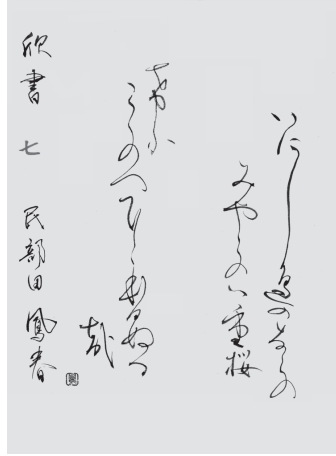 いにし遍のならの
みやこの八重桜
けふ
こゝのへにゝほひぬる
哉
欣書 七 民部田 鳳春